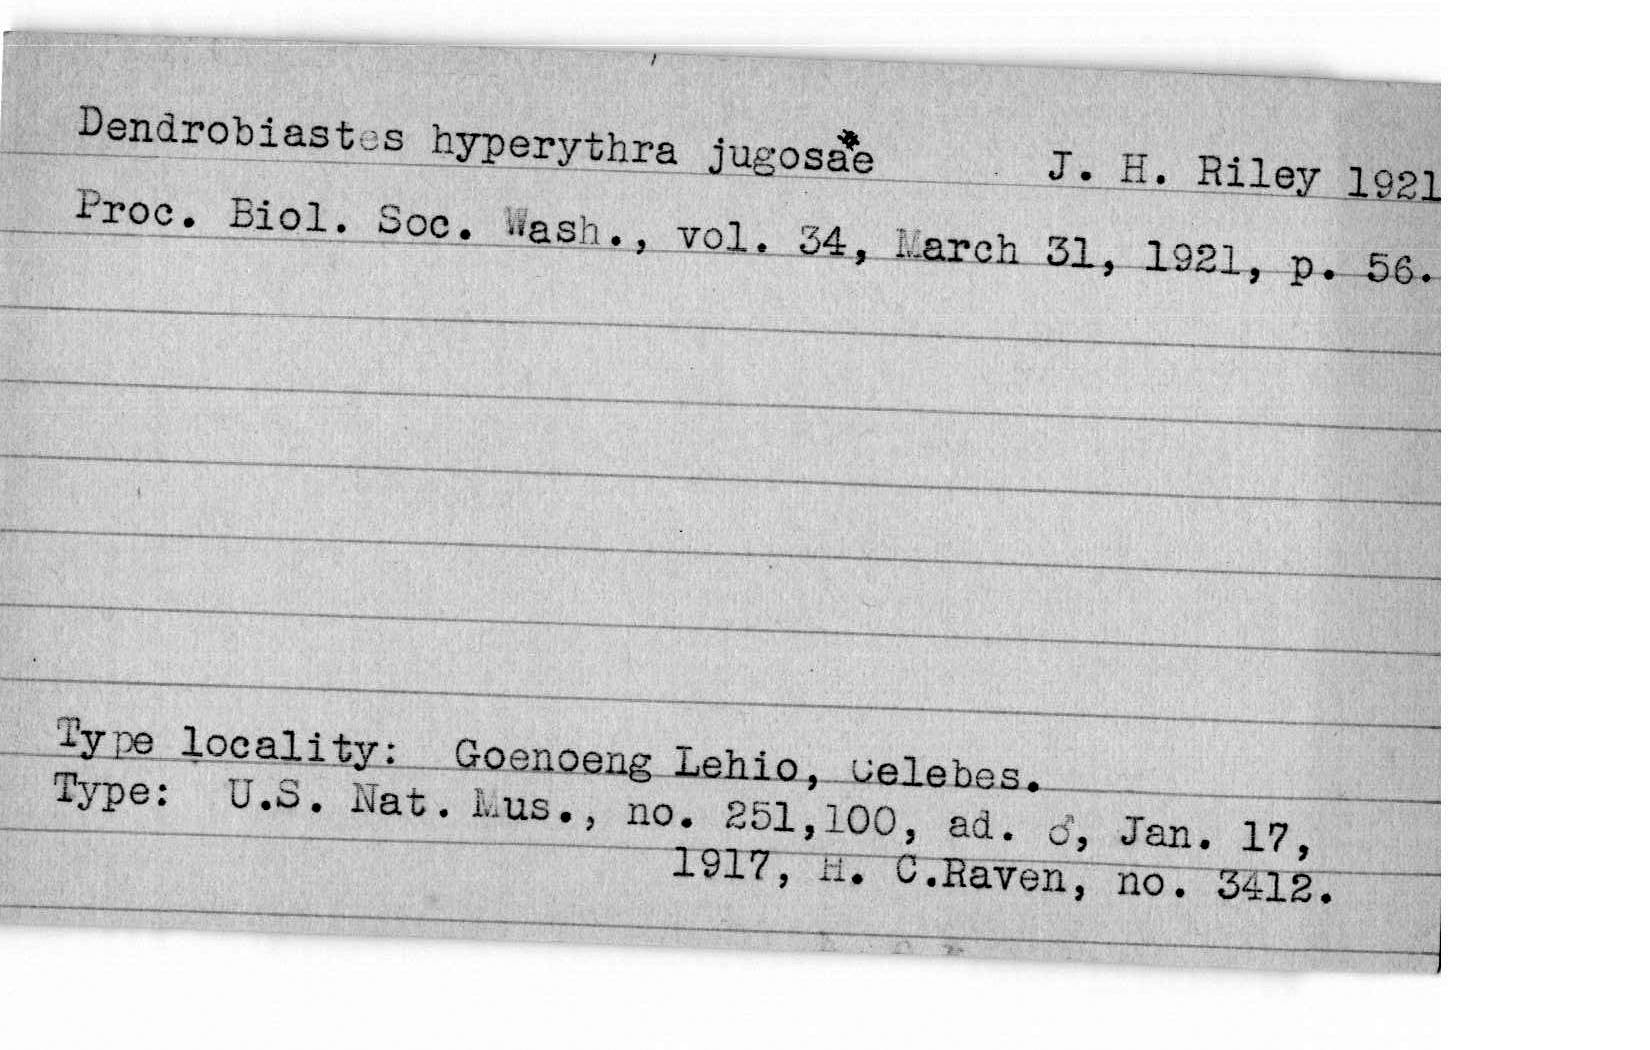 Dendrobiastes hyperythra jugosae J. H. Riley 1921
Proc. Biol. Soc. Wash., vol. 34, March 31, 1921, p. 56.
Type locality: Goenoeng Lehio, Celebes.
Type: U.S. Nat. Mus., no. 251,100, ad. ♂, Jan. 17,
1917, H. C.Raven, no. 3412.